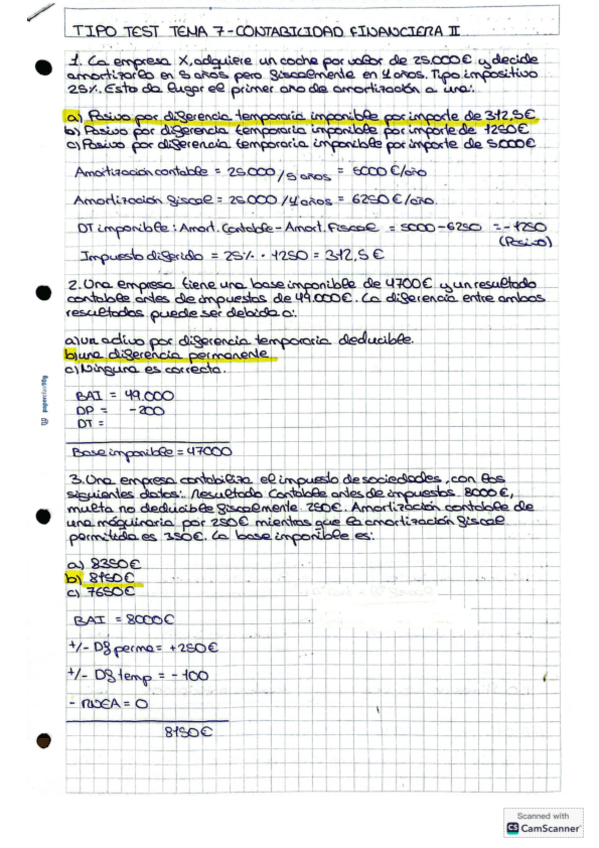 TIPO TEST TEMA 7 - CONTABILIDAD FINANCIERA II
1. La empresa X, adquiere un coche por valor de 25.000€ y decide
amortizarlo en 5 años pero fiscalmente en 4 años. Tipo impositivo
25%. Esto da lugar el primer año de amortización a una:
a) Pasivo por diferencia temporaria imponible por importe de 312,5€
b) Pasivo por diferencia temporaria imponible por importe de 1250€
c) Pasivo por diferencia temporaria imponible por importe de 5.000€
Amortización contable = 25.000 / 5 años = 5000 €/año
Amortización fiscal = 25.000 / 4 años = 6250 €/año.
DT imponible: Amort. Contable - Amort. Fiscal = 5000 - 6250 = -1250
(Pasivo)
Impuesto diferido = 25% · 1250 = 312,5€
2. Una empresa tiene una base imponible de 4700€ y un resultado
contable antes de impuestos de 49.000€. La diferencia entre ambos
resultados puede ser debida a:
a) un activo por diferencia temporaria deducible.
b) una diferencia permanente
c) Ninguna es correcta.
BAI = 49.000
DP = -200
DT =
Base imponible = 47000
3. Una empresa contabiliza el impuesto de sociedades, con los
siguientes datos: Resultado Contable antes de impuestos 8000€,
multa no deducible fiscalmente 250€. Amortización contable de
una máquinaria por 250€ mientras que la amortización fiscal
permitida es 350€. La base imponible es:
a) 8350€
b) 8150€
c) 7650€
BAI = 8000€
+/- Df perma = +250€
+/- Df temp = -100
- = 0
8150€
paperclass98g
Scanned with
CS CamScanner